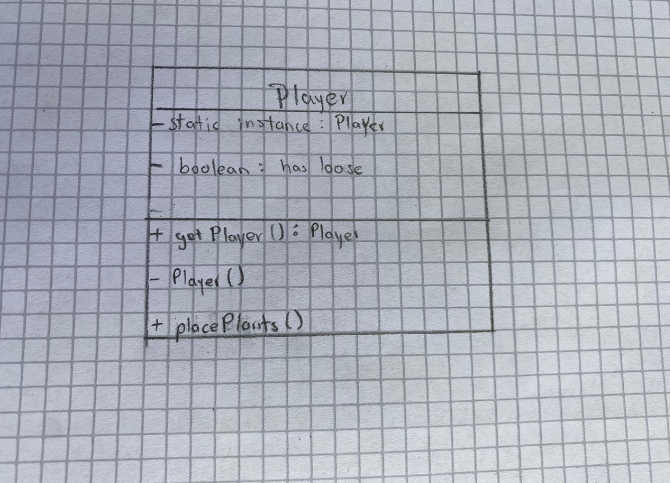 Player
- static instance : Player
- boolean : has loose
-
+ getPlayer() : Player
- Player()
+ placePlants()